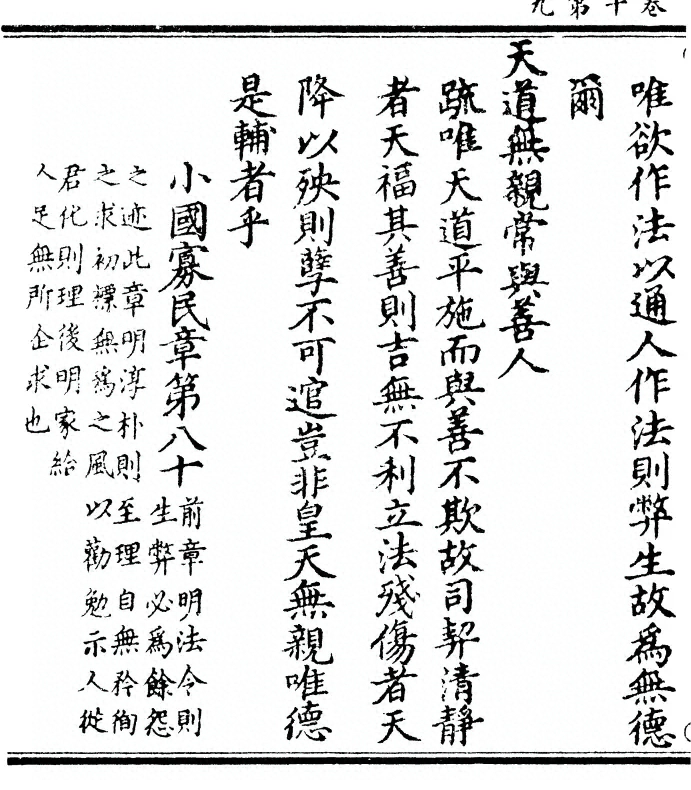 卷十第九
唯欲作法以通人作法則弊生故爲無德
爾
天道無親常與善人
疏唯天道平施而與善不欺故司契清靜
者天福其善則吉無不利立法殘傷者天
降以殃則孽不可逭豈非皇天無親唯德
是輔者乎
小國寡民章第八十
前章明法令則
生弊必爲餘怨
之迹此章明淳朴則至理自無矜徇
之求初標無爲之風以勸勉示人從
君化則理後明家給
人足無所企求也